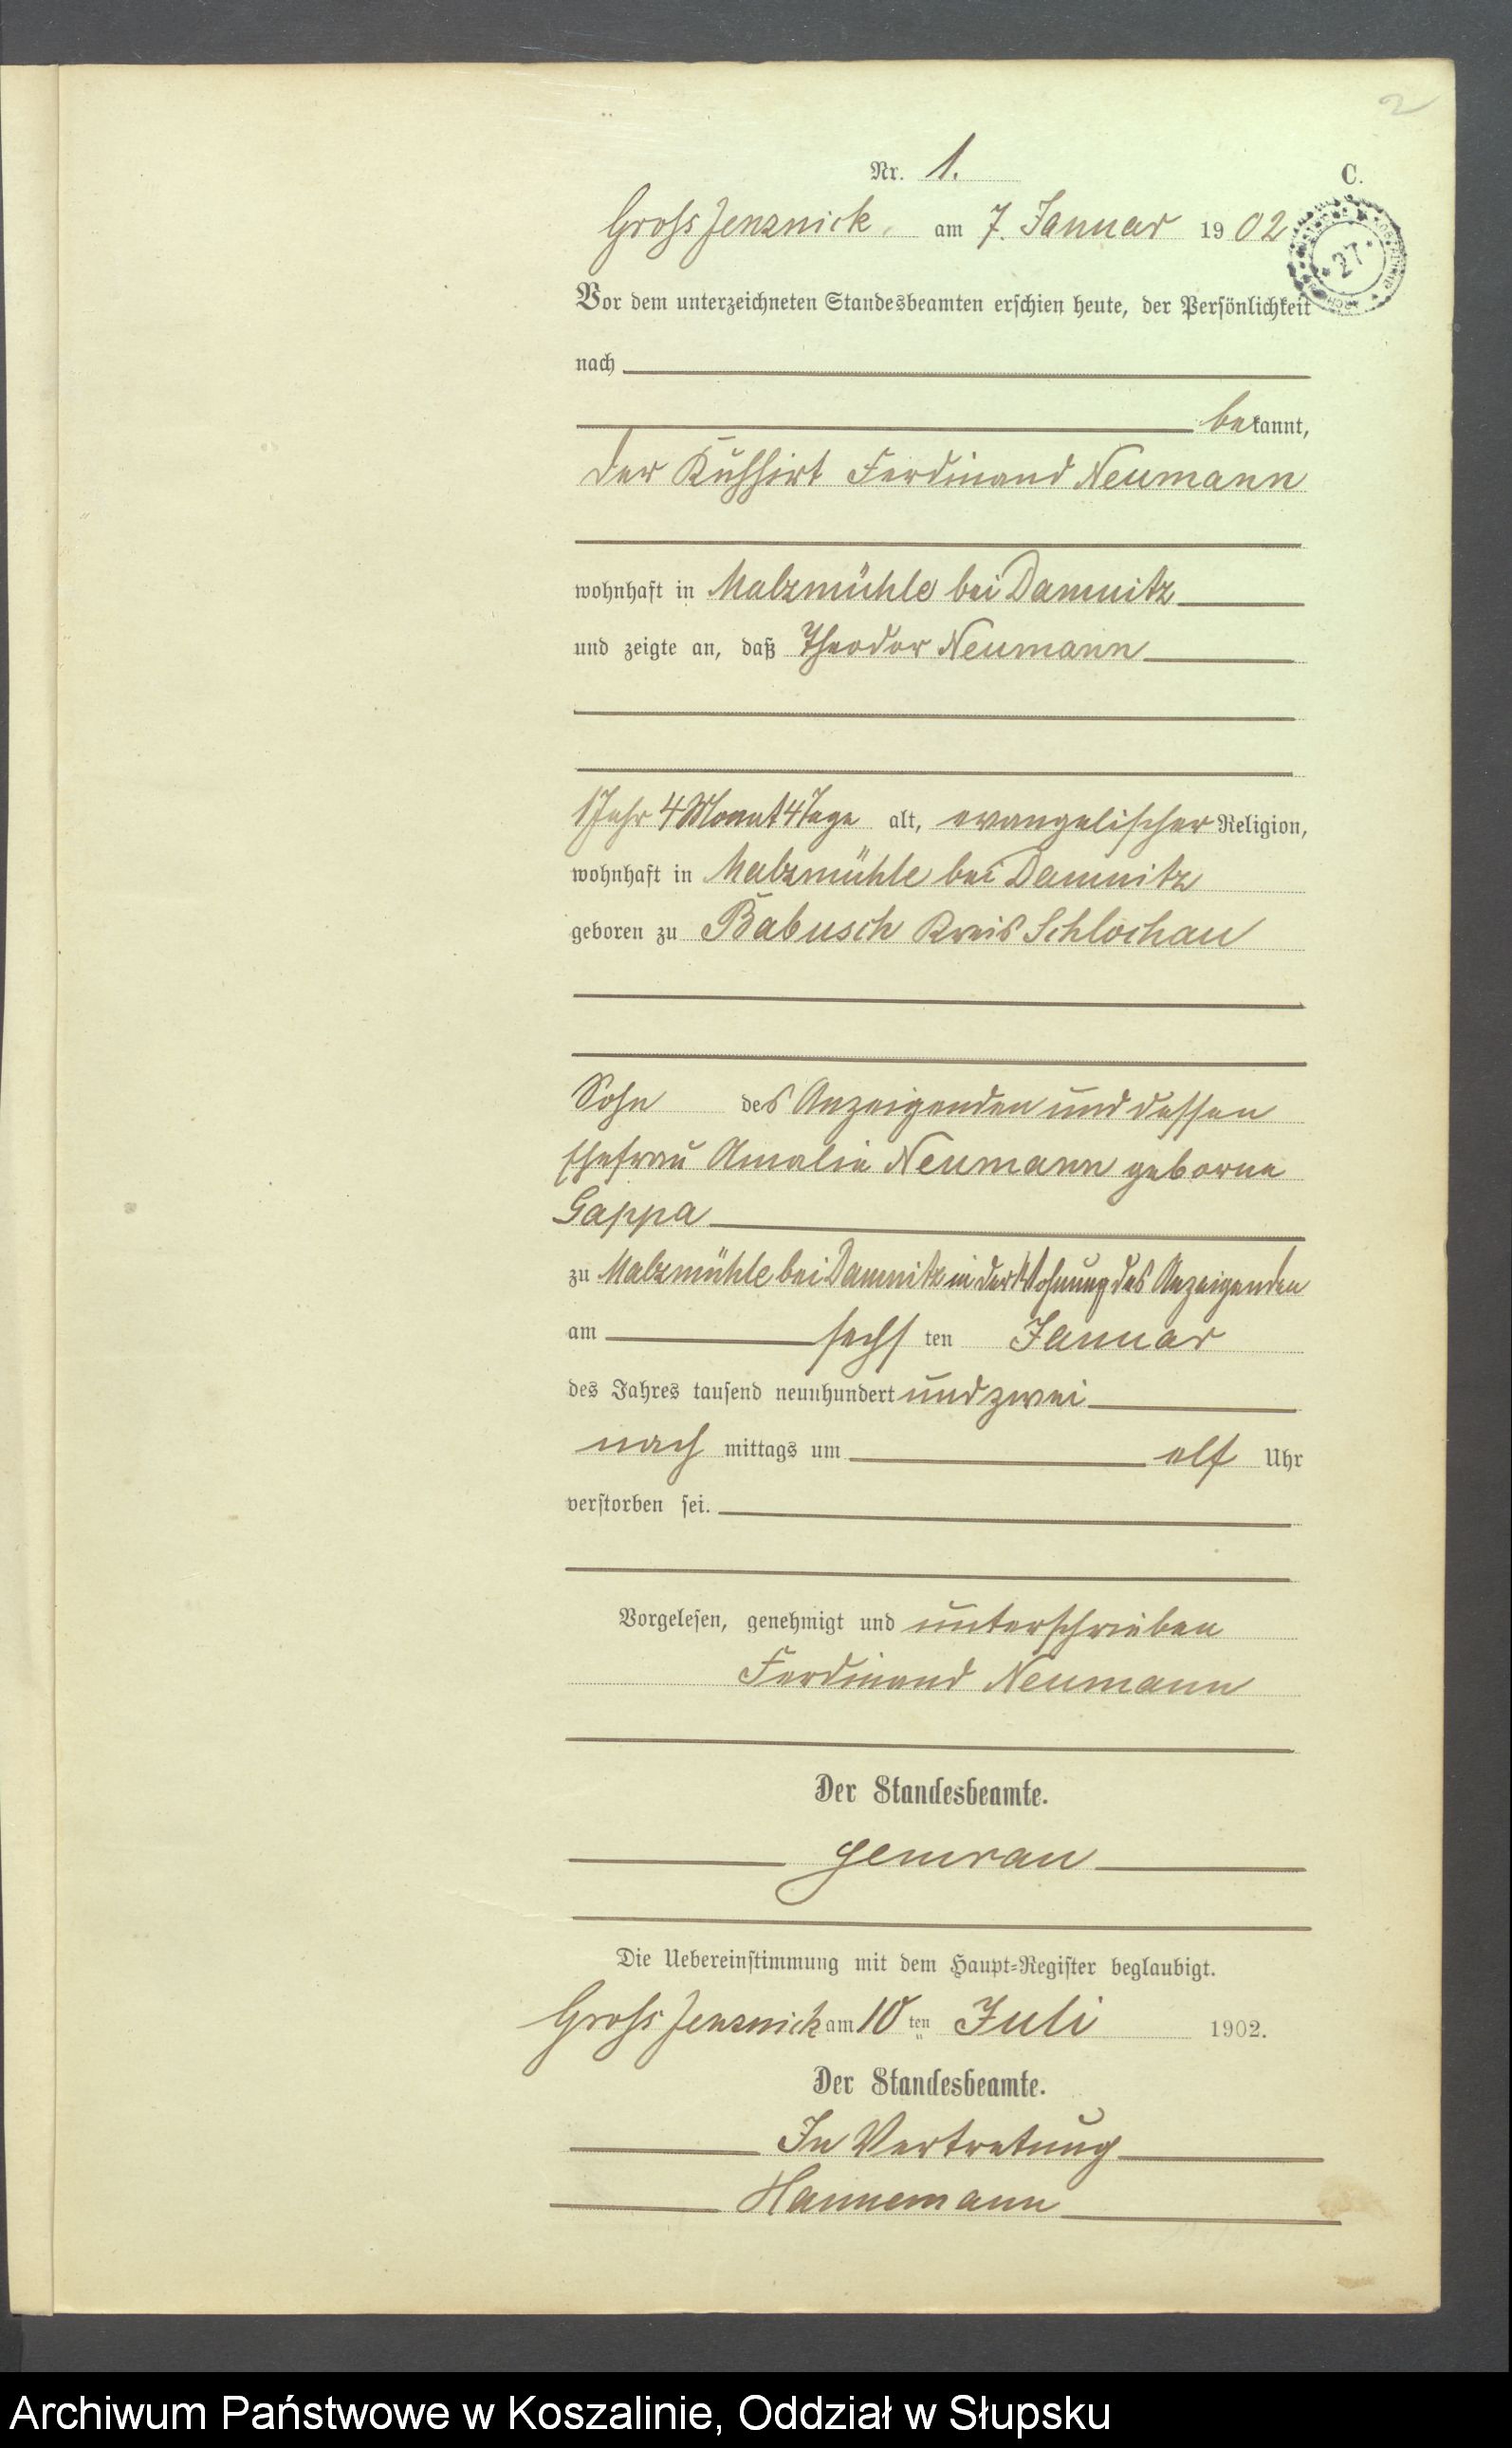 2
Nr. 1.
C.
Gross Jenznick. am 7. Januar 1902
27
Vor dem unterzeichneten Standesbeamten erschien heute, der Persönlichkeit
nach
bekannt,
der Kuhhirt Ferdinand Neumann
wohnhaft in Malzmühle bei Damnitz
und zeigte an, daß Theodor Neumann
1 Jahr 4 Monat 4 Tage alt, evangelischer Religion,
wohnhaft in Malzmühle bei Damnitz
geboren zu Babusch Kreis Schlochau
Sohn des Anzeigenden und dessen
Ehefrau Amalie Neumann geborne
Gappa
zu Malzmühle bei Damnitz in der Wohnung des Anzeigenden
am sechs ten Januar
des Jahres tausend neunhundert und zwei
nach mittags um elf Uhr
verstorben sei.
Vorgelesen, genehmigt und unterschrieben
Ferdinand Neumann
Der Standesbeamte.
Gemrau
Die Uebereinstimmung mit dem Haupt-Register beglaubigt.
Gross Jenznick am 10 ten Juli 1902.
Der Standesbeamte.
In Vertretung
Hannemann
Archiwum Państwowe w Koszalinie, Oddział w Słupsku